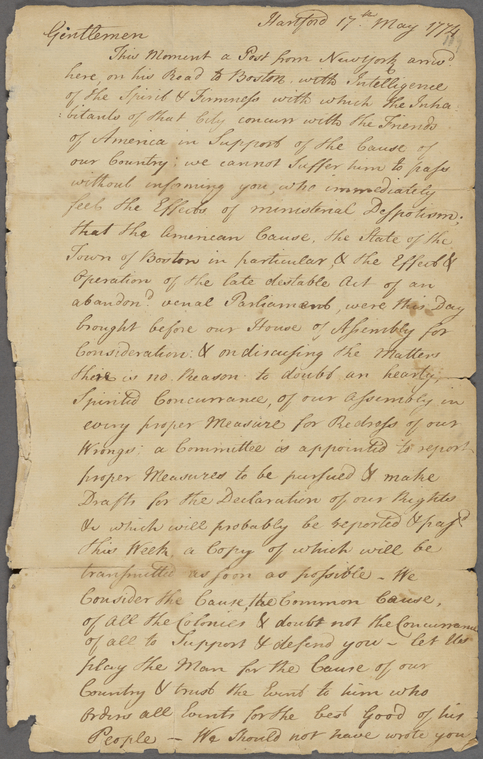 Hartford 17th May 1774
Gentlemen
This Moment a Post from New York arriv'd
here, on his Road to Boston with Intelligence
of the Spirit & Firmness with which the Inha-
-bitants of that City concurr with the Friends
of America in Support of the Cause of
our Country: we cannot suffer him to pass
without informing you, who immediately
feel the Effects of ministerial Despotism;
that the American Cause, the State of the
Town of Boston in particular, & the Effect &
Operation of the late detestable Act of an
abandon'd venal Parliament, were this Day
brought before our House of Assembly for
Consideration: & on discussing the Matters
there is no Reason to doubt an hearty,
Spirited Concurrance, of our Assembly in
every proper Measure for Redress of our
Wrongs: a Committee is appointed to report
proper Measures to be pursued & make
Drafts for the Declaration of our Rights
&c which will probably be reported & pass'd
this Week, a Copy of which will be
transmitted as soon as possible – We
Consider the Cause, the Common Cause,
of all the Colonies & doubt not the Concurrance
of all to Support & defend you – let us
play the Man for the Cause of our
Country & trust the Event to him who
orders all Events for the best Good of his
People – We should not have wrote you